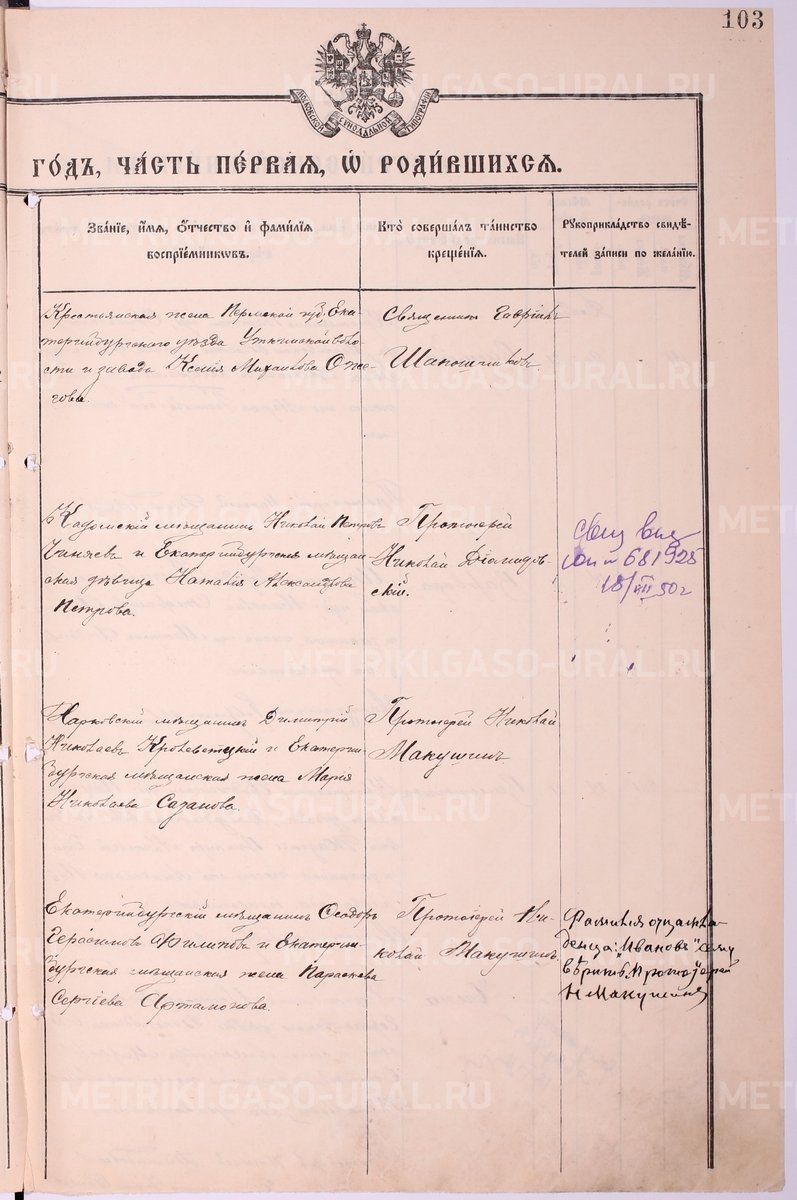 103
МОСКОВСКОЙ СѴНОДАЛЬНОЙ ТИПОГРАФІИ
ГОДЪ, ЧАСТЬ ПЕРВАЯ, Ѡ РОДИВШИХСЯ.
Званіе, имя, отчество и фамилія
воспріемниковъ.
Кто совершалъ таинство
крещенія.
Рукоприкладство свидѣ-
телей записи по желанію.
Крестьянская жена Пермской губ., Ека-
теринбургскаго уѣзда Уткинской воло-
сти и завода Ксенія Михаилова Оже-
гова.
Священникъ Гавріилъ
Шапошниковъ
Кадомскій мѣщанинъ Николай Петровъ
и Екатеринбургская мѣщан-
ская дѣвица Наталія Александрова
Петрова.
Протоіерей
Николай Діомидов-
скій.
681925
18/VII 50 г
мѣщанинъ Димитрій
Николаевъ Кролевецкій и Екатерин-
бургская мѣщанская жена Марія
Николаева Сазанова.
Протоіерей Николай
Макушинъ
Екатеринбургскій мѣщанинъ Ѳеодоръ
Герасимовъ Филиповъ и Екатерин-
бургская мѣщанская жена Параскева
Сергіева Артамонова.
Протоіерей Ни-
колай Макушинъ.
Фамилія отца мла-
денца: "Ивановъ"
вѣрить. Протоіерей
Н Макушинъ
METRIKI.GASO-URAL.RU